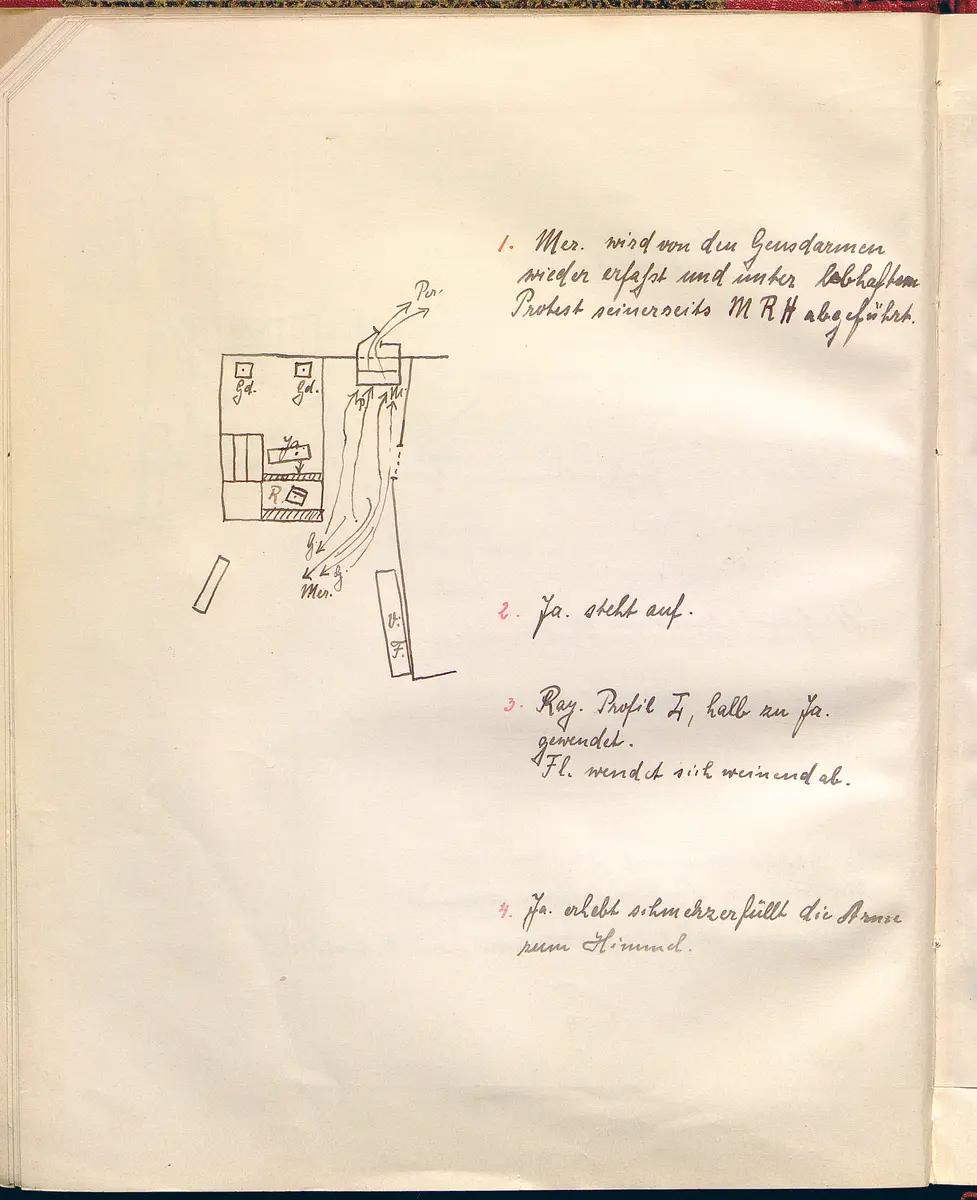 Per.
Gd. Gd.
P. M.
Ja.
R.
G.
G.
Mer.
V.
F.
1. Mer. wird von den Gensdarmen
wieder erfaßt und unter lebhaftem
Protest seinerseits M R H abgeführt.
2. Ja. steht auf.
3. Ray. Profil L, halb zu Ja.
gewendet.
Fl. wendet sich weinend ab.
4. Ja. erhebt schmerzerfüllt die Arme
zum Himmel.